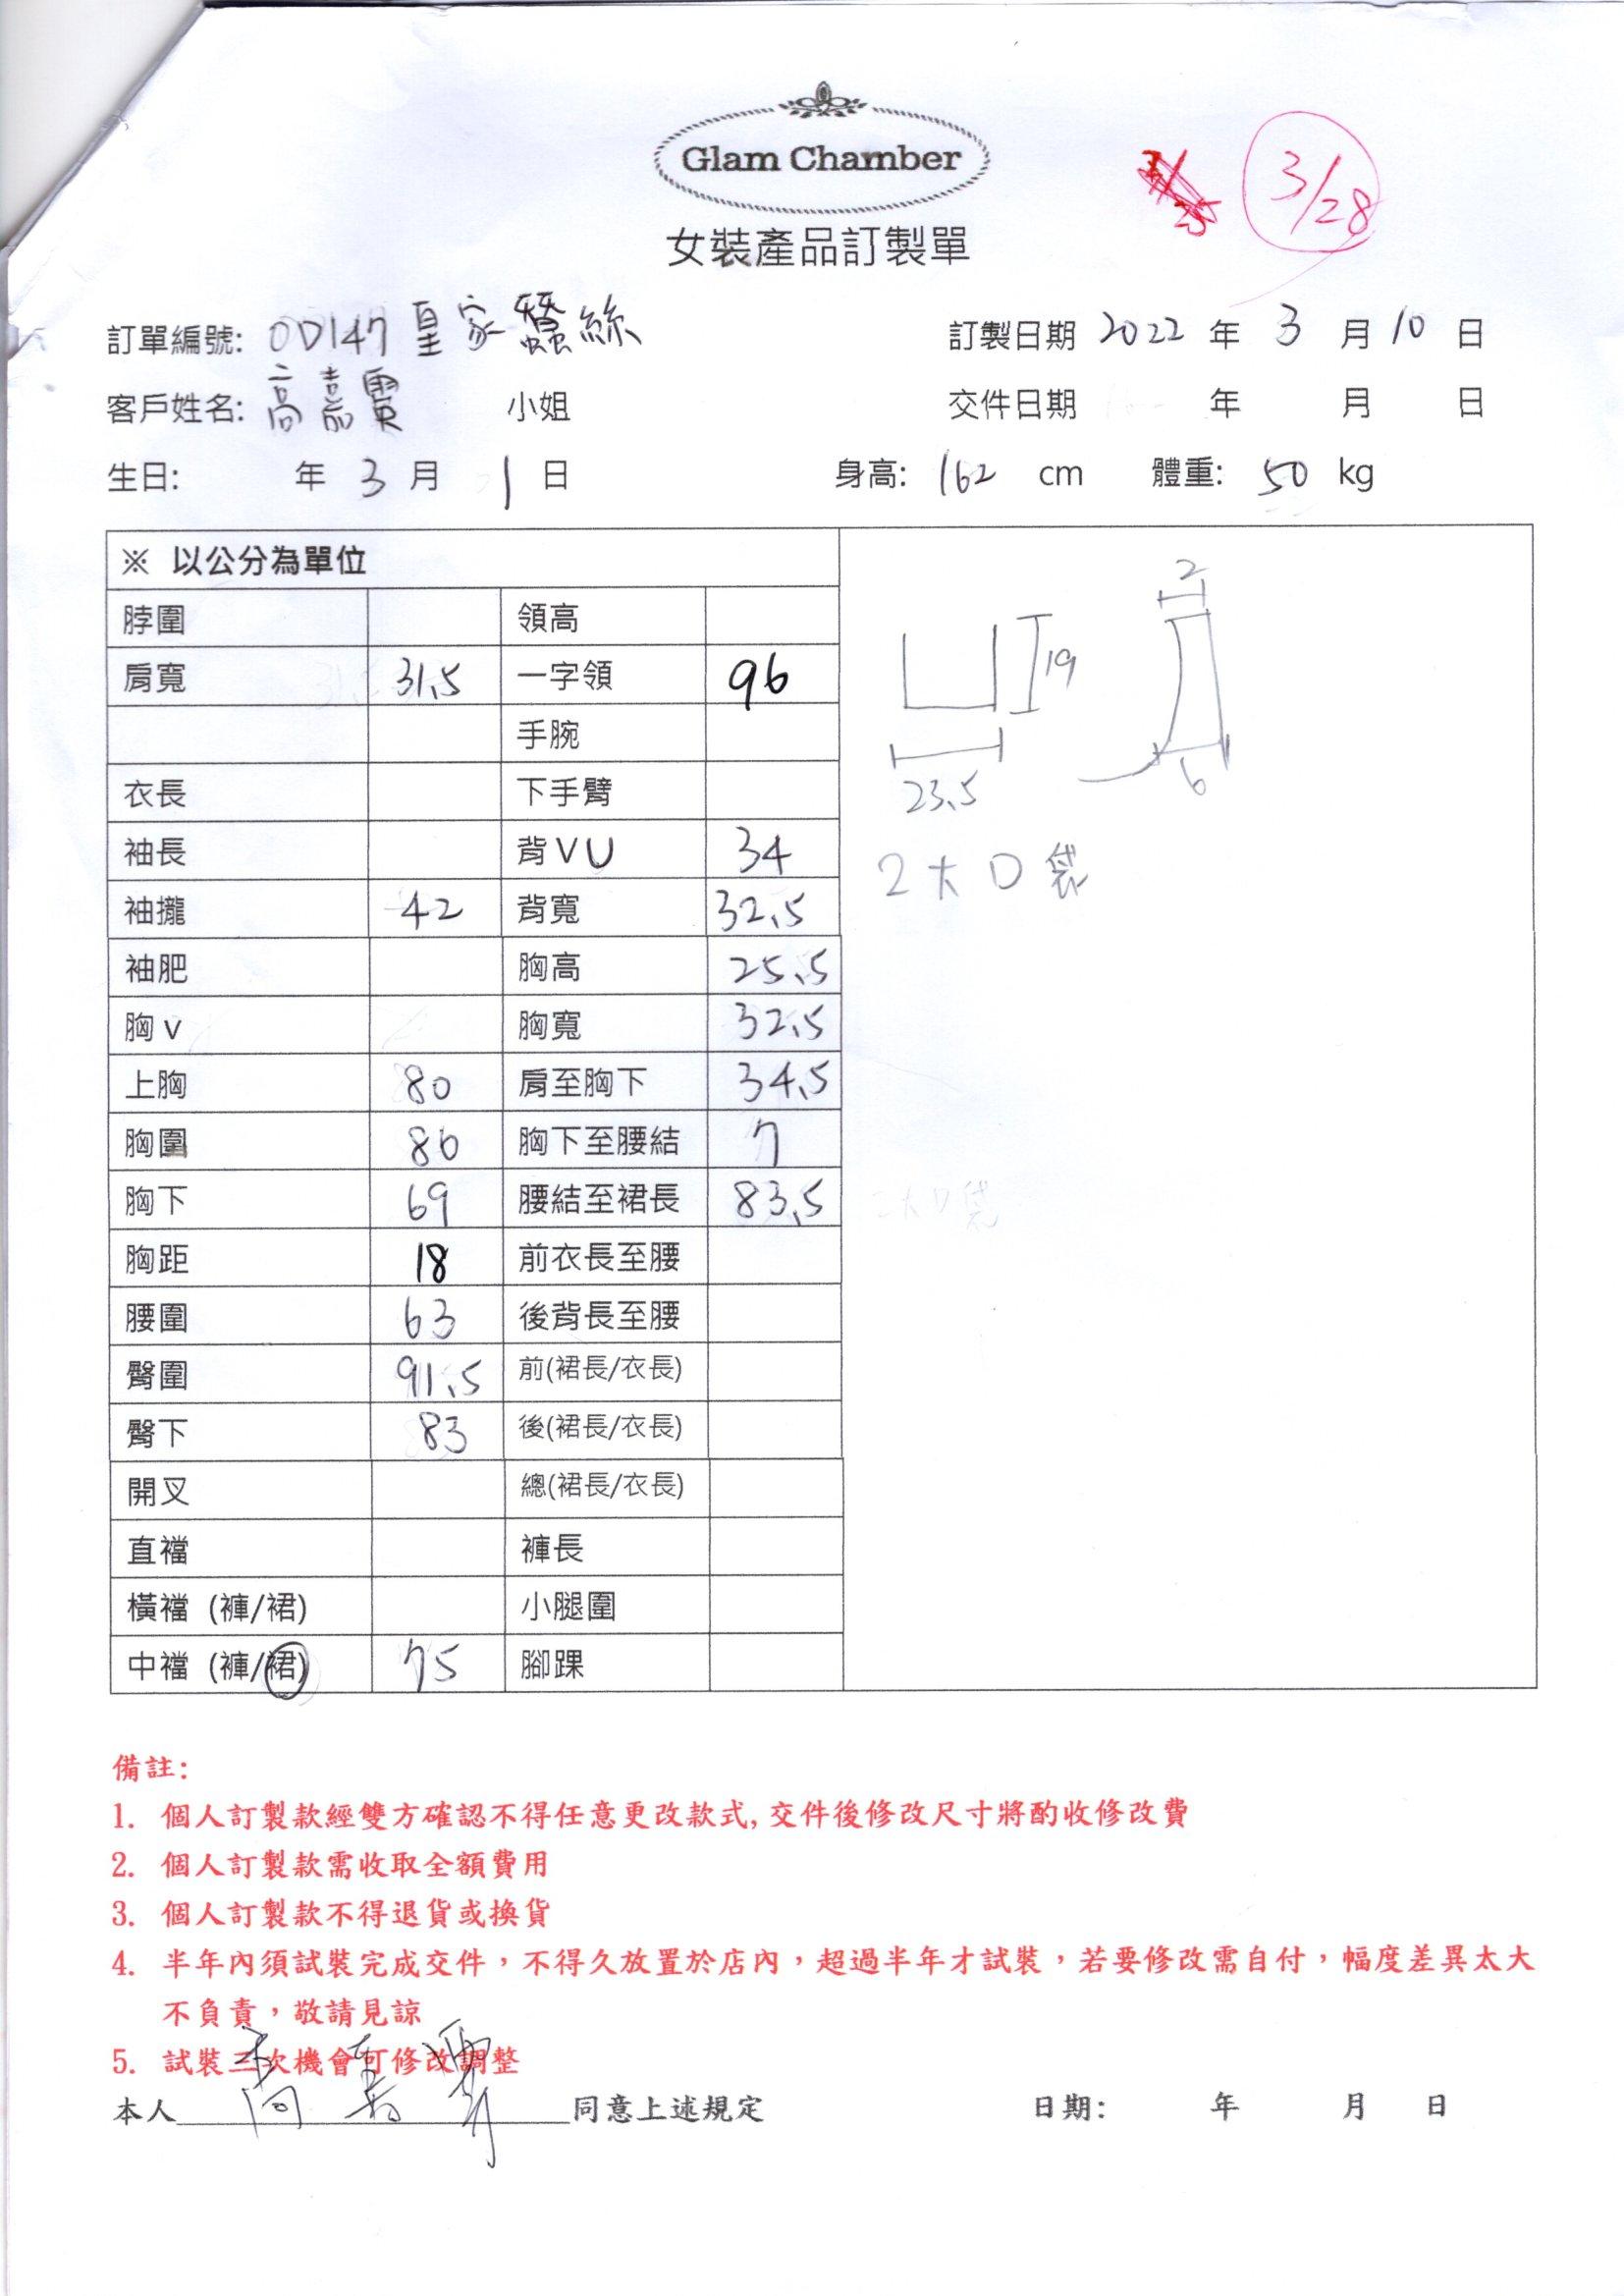 Glam Chamber
3/28
女裝產品訂製單
訂單編號: OD147皇家蠶絲
訂製日期 2022 年 3 月 10 日
客戶姓名: 高嘉霣 小姐
交件日期 年 月 日
生日: 年 3 月 1 日
身高: 162 cm 體重: 50 kg
※ 以公分為單位
脖圍 領高
肩寬 31.5 一字領 96
手腕
衣長 下手臂
袖長 背VU 34
袖攏 42 背寬 32.5
袖肥 胸高 25.5
胸v 胸寬 32.5
上胸 80 肩至胸下 34.5
胸圍 86 胸下至腰結 7
胸下 69 腰結至裙長 83.5
胸距 18 前衣長至腰
腰圍 63 後背長至腰
臀圍 91.5 前(裙長/衣長)
臀下 83 後(裙長/衣長)
開叉 總(裙長/衣長)
直襠 褲長
橫襠 (褲/裙) 小腿圍
中襠 (褲/裙) 75 腳踝
2
19
23.5
6
2大口袋
備註:
1. 個人訂製款經雙方確認不得任意更改款式, 交件後修改尺寸將酌收修改費
2. 個人訂製款需收取全額費用
3. 個人訂製款不得退貨或換貨
4. 半年內須試裝完成交件，不得久放置於店內，超過半年才試裝，若要修改需自付，幅度差異太大
不負責，敬請見諒
5. 試裝三次機會可修改調整
本人 同意上述規定
日期: 年 月 日